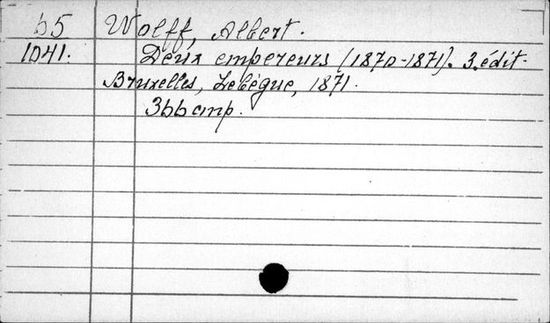 65 Wolff, Albert.
1041. Deux empereurs (1870-1871). 3. édit.
Bruxelles, Lebègue, 1871.
366 cmp.